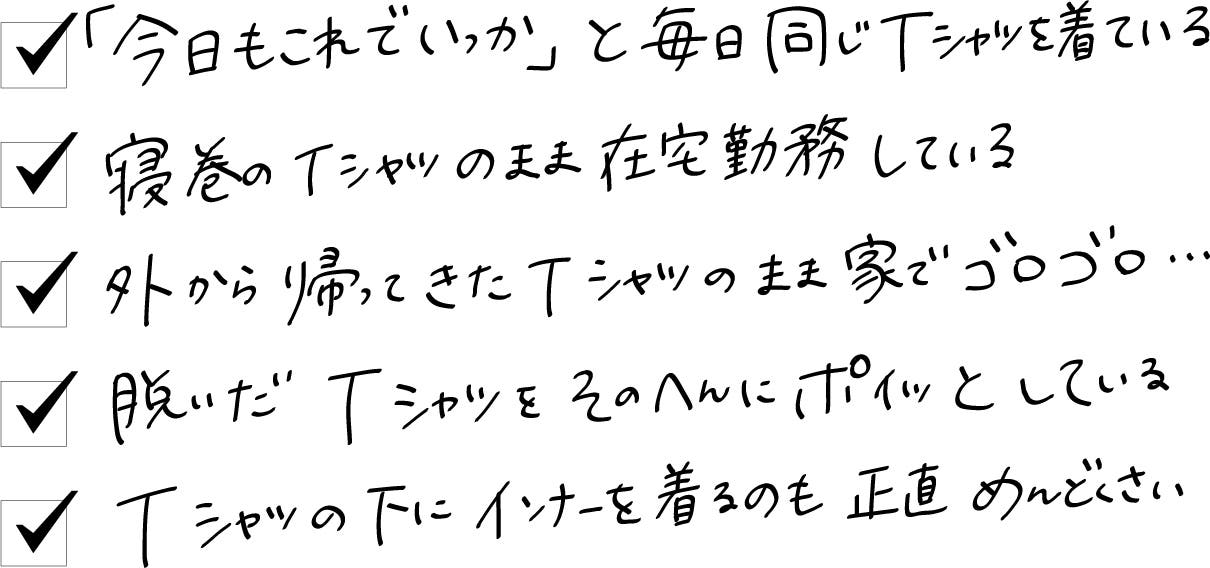 「今日もこれでいっか」と毎日同じTシャツを着ている
寝巻のTシャツのまま在宅勤務している
外から帰ってきたTシャツのまま家でゴロゴロ…
脱いだTシャツをそのへんにポイッとしている
Tシャツの下にインナーを着るのも正直めんどくさい